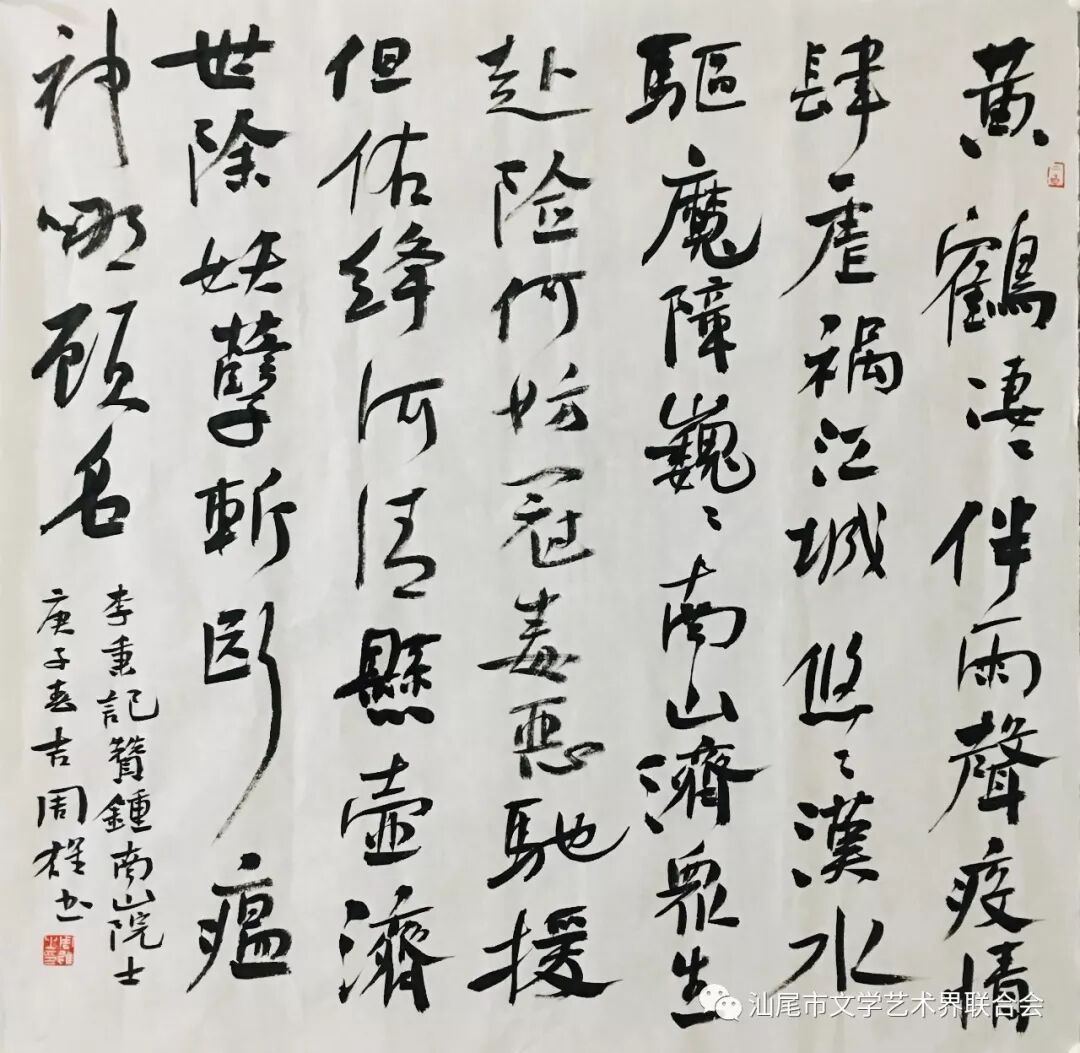 黄鶴凄〻伴雨聲疫情
肆虐禍江城悠〻漢水
驅魔障巍〻南山濟衆生
赴险何妨冠毒惡馳援
但佑绛河清懸壶濟
世除妖孽斬断瘟
神哪顾名
李秉記贊鍾南山院士
庚子春吉周雄书
汕尾市文学艺术界联合会